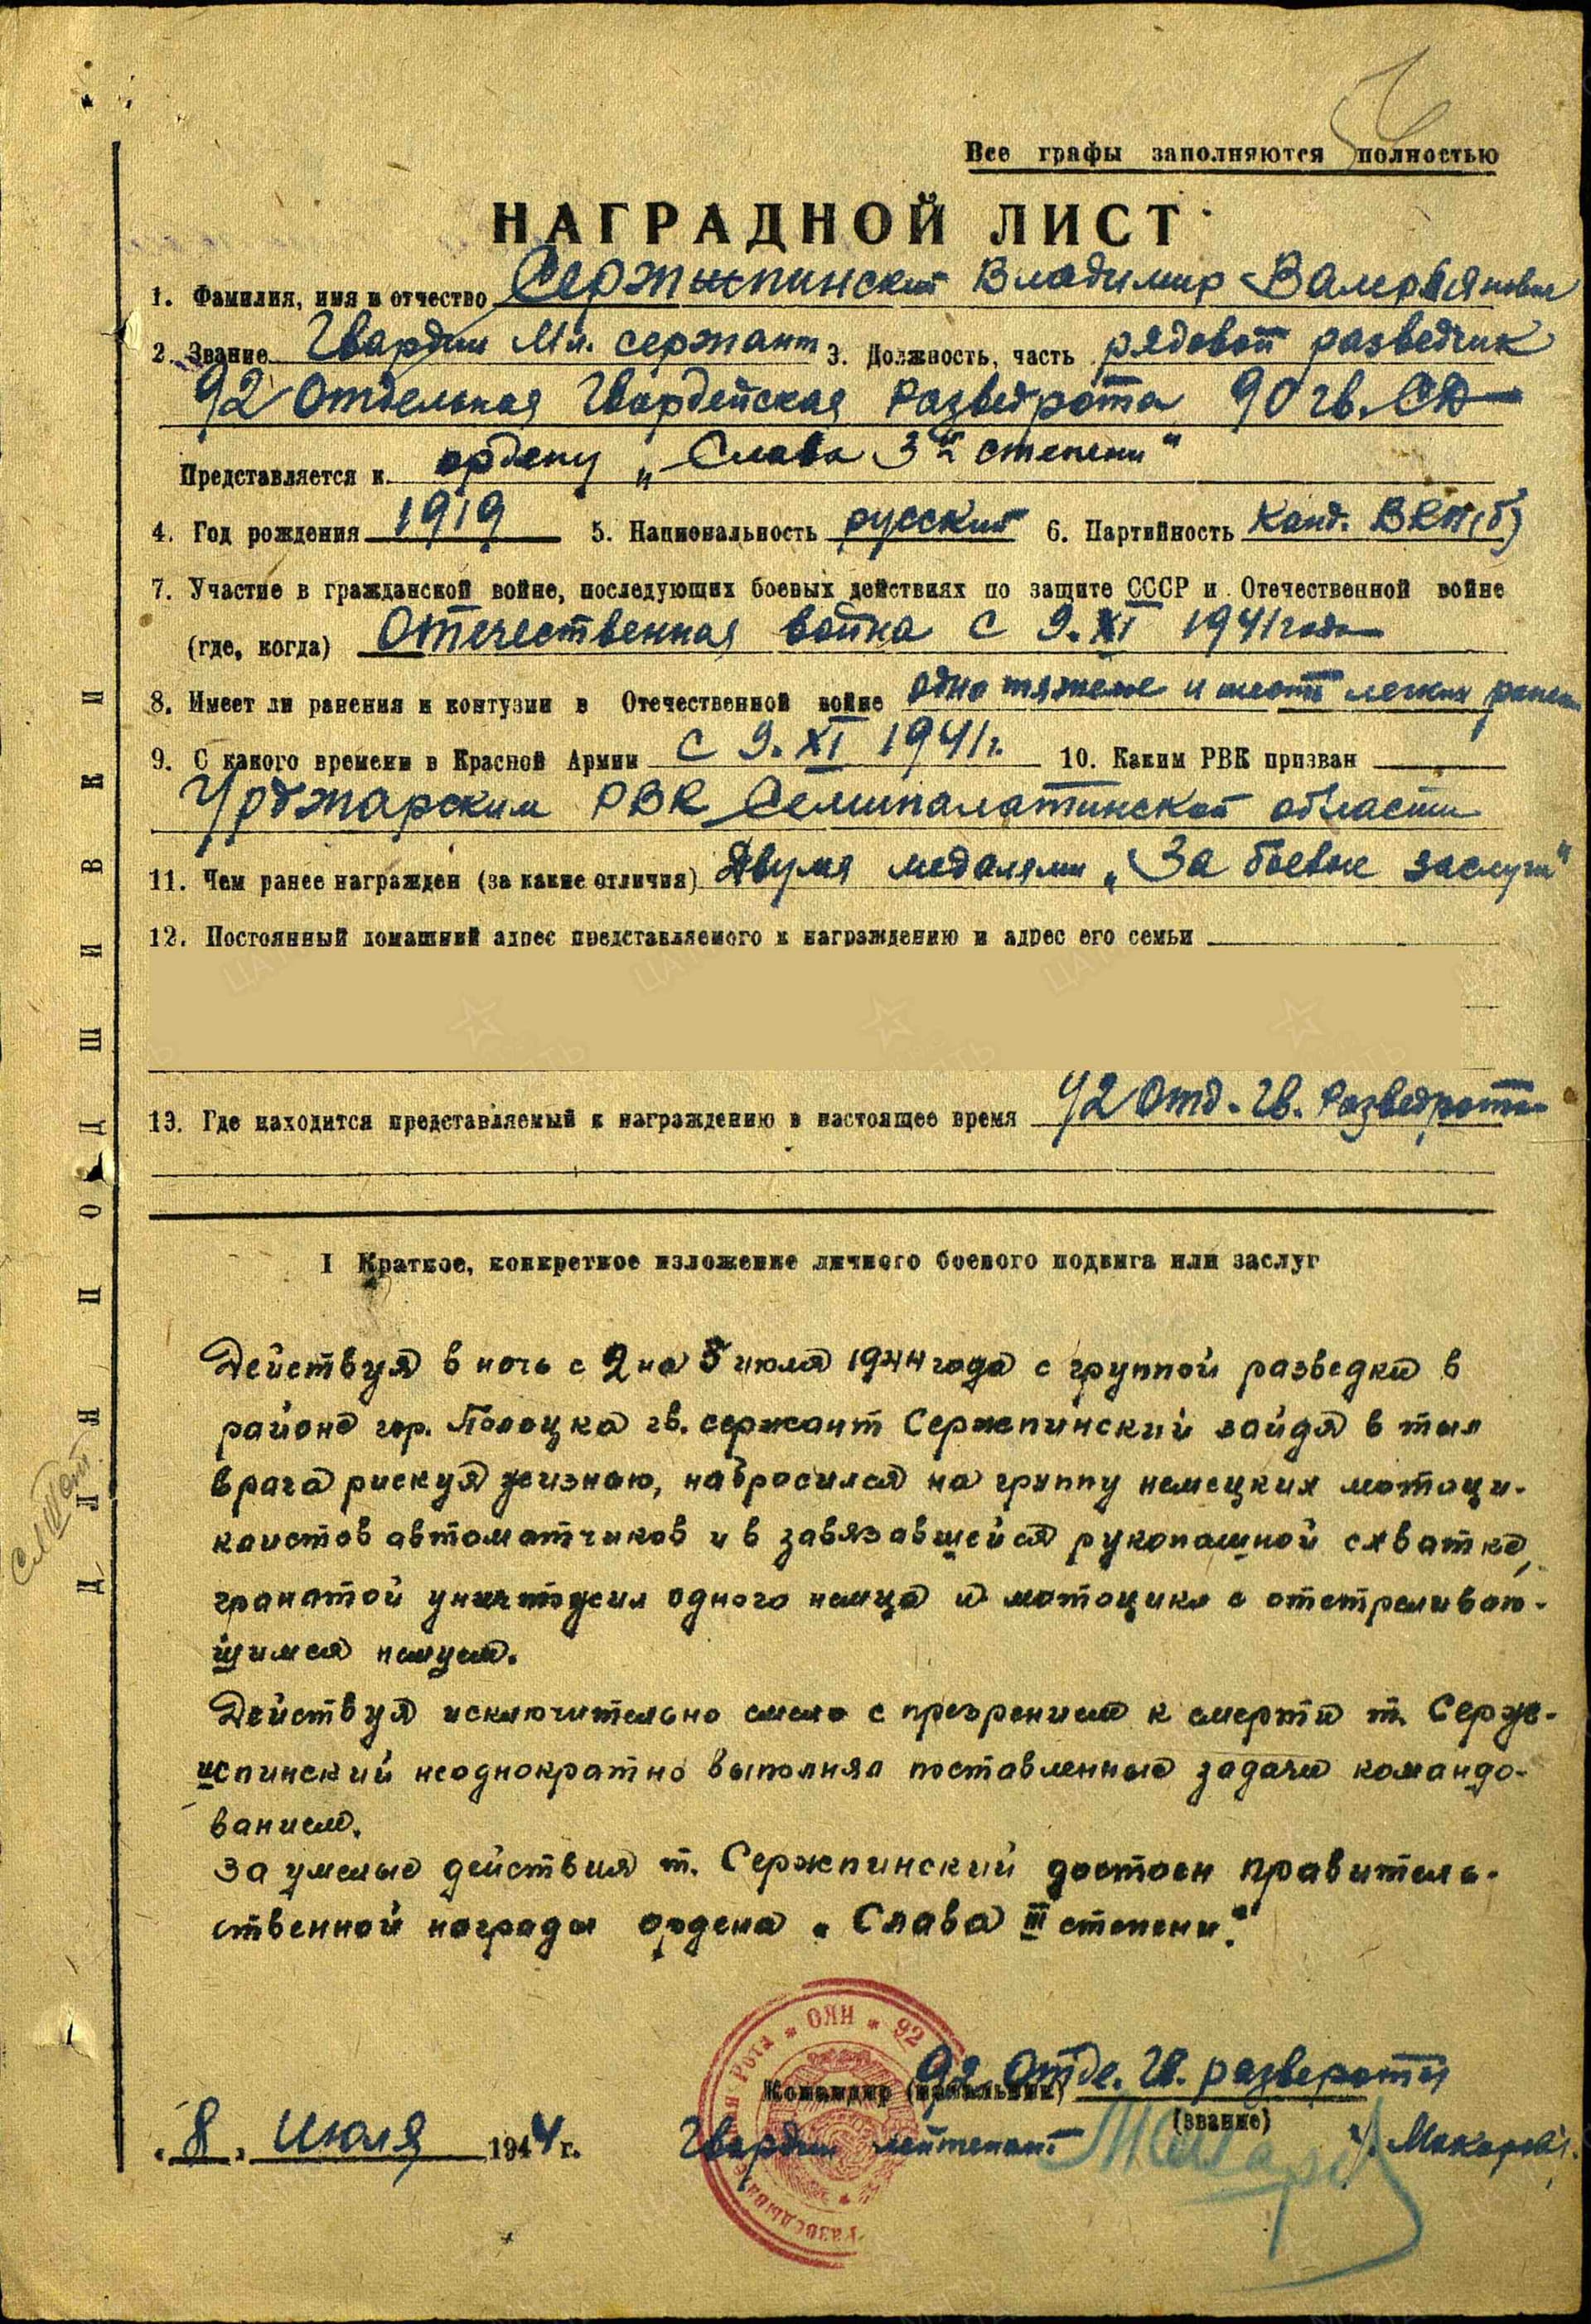 Все графы заполняются полностью
НАГРАДНОЙ ЛИСТ
1. Фамилия, имя и отчество Сержпинский Владимир Валерьянович
2. Звание Гвардии Мл. сержант 3. Должность, часть рядовой разведчик
92 Отдельная Гвардейская Разведрота 90 гв. СД
Представляется к ордену „Слава 3й степени"
4. Год рождения 1919 5. Национальность русский 6. Партийность Канд. ВКП(б)
7. Участие в гражданской войне, последующих боевых действиях по защите СССР и Отечественной войне
(где, когда) Отечественная война с 9.XI 1941 года
8. Имеет ли ранения и контузии в Отечественной войне одно тяжелое и шесть легких ранен
9. С какого времени в Красной Армии с 9.XI 1941 г. 10. Каким РВК призван
Урджарским РВК Семипалатинской области
11. Чем ранее награжден (за какие отличия) Двумя медалями „За боевые заслуги"
12. Постоянный домашний адрес представляемого к награждению и адрес его семьи
13. Где находится представляемый к награждению в настоящее время 92 Отд. Гв. Разведрота
I Краткое, конкретное изложение личного боевого подвига или заслуг
Действуя в ночь с 2 на 3 июля 1944 года с группой разведки в
районе гор. Полоцка гв. сержант Сержпинский зайдя в тыл
врага рискуя жизнью, набросился на группу немецких мотоци-
клистов автоматчиков и в завязавшейся рукопашной схватке,
гранатой уничтожил одного немца и мотоцикл с отстреливаю-
щимся немцем.
Действуя исключительно смело с презрением к смерти т. Серж-
испинский неоднократно выполнял поставленные задачи командо-
ванием.
За умелые действия т. Сержпинский достоен правитель-
ственной награды ордена „Слава III степени."
Командир (начальник) 92 Отде. Гв. развероты
(звание)
„8" Июля 1944 г. Гвардии лейтенант Макаров
ДЛЯ ПОДШИВКИ
Разведывательная Рота * ОЯН * 92